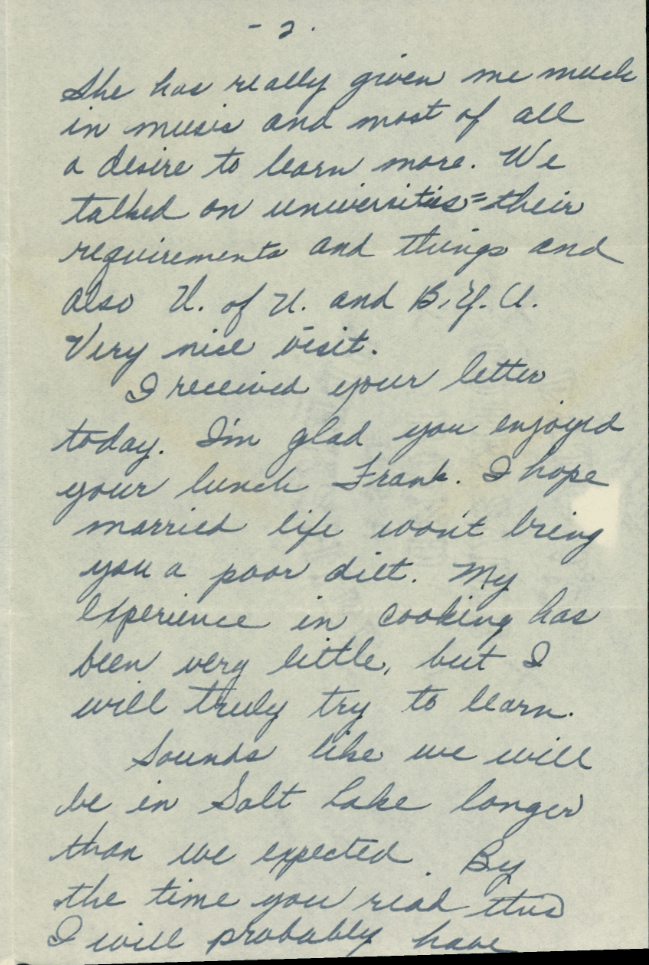 - 2.
She has really given me much
in music and most of all
a desire to learn more. We
talked on universities = their
requirements and things and
also U. of U. and B.Y.U.
Very nice visit.
I received your letter
today. I'm glad you enjoyed
your lunch Frank. I hope
married life won't bring
you a poor diet. My
experience in cooking has
been very little, but I
will truly try to learn.
Sounds like we will
be in Salt Lake longer
than we expected. By
the time you read this
I will probably have